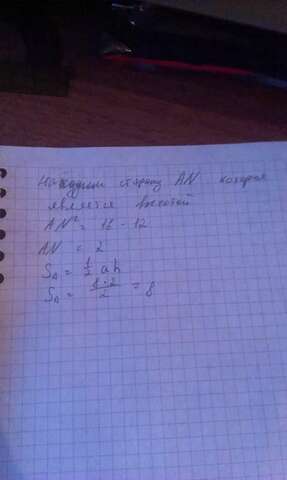 Находим сторону AN которая
является высотой
AN² = 16 - 12
AN = 2
S△ = 1/2 ah
S△ = 4·2/2 = 8